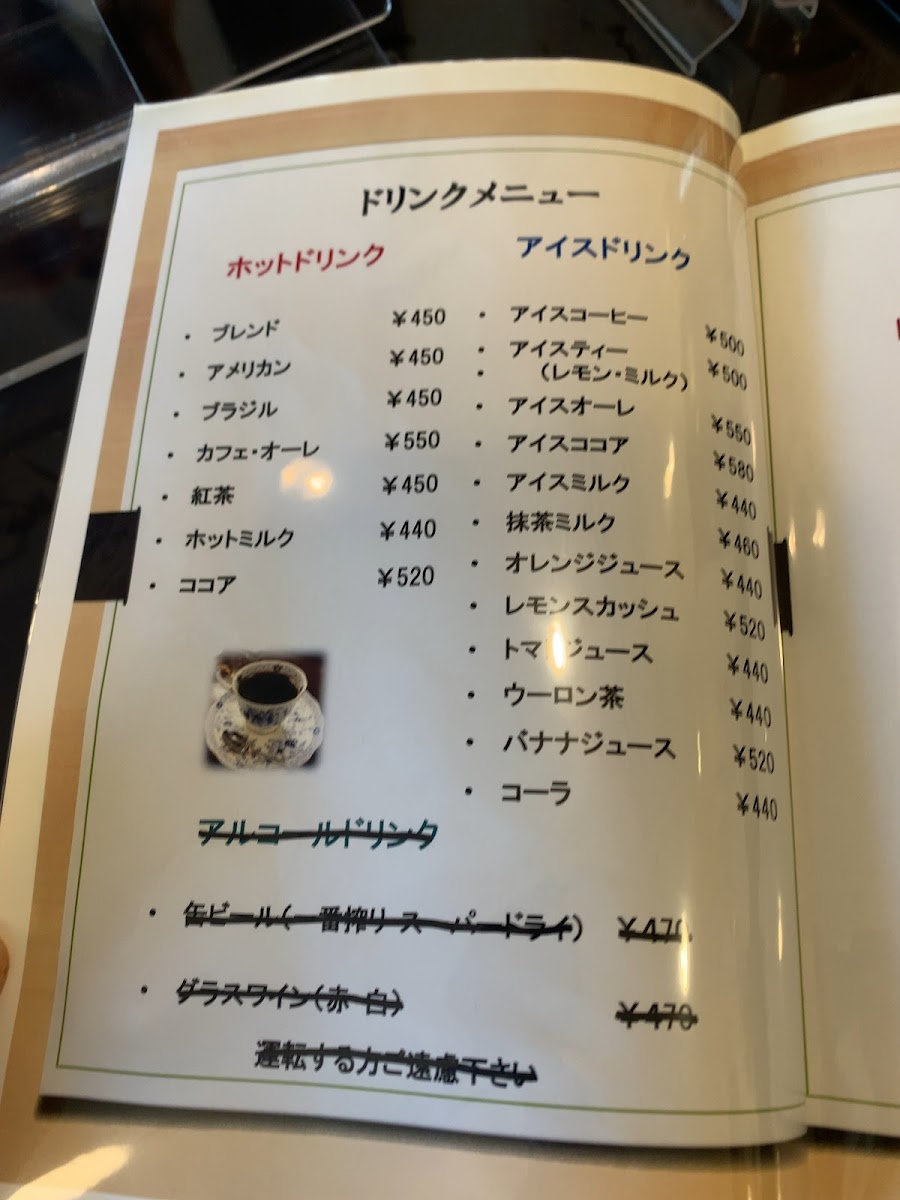 ドリンクメニュー
ホットドリンク
・ブレンド ¥450
・アメリカン ¥450
・ブラジル ¥450
・カフェ・オーレ ¥550
・紅茶 ¥450
・ホットミルク ¥440
・ココア ¥520
アイスドリンク
・アイスコーヒー ¥500
・アイスティー ¥500
・(レモン・ミルク)
・アイスオーレ ¥550
・アイスココア ¥580
・アイスミルク ¥440
・抹茶ミルク ¥460
・オレンジジュース ¥440
・レモンスカッシュ ¥520
・トマトジュース ¥440
・ウーロン茶 ¥440
・バナナジュース ¥520
・コーラ ¥440
アルコールドリンク
・缶ビール(一番搾り スーパードライ) ¥470
・グラスワイン(赤・白) ¥470
運転する方ご遠慮下さい